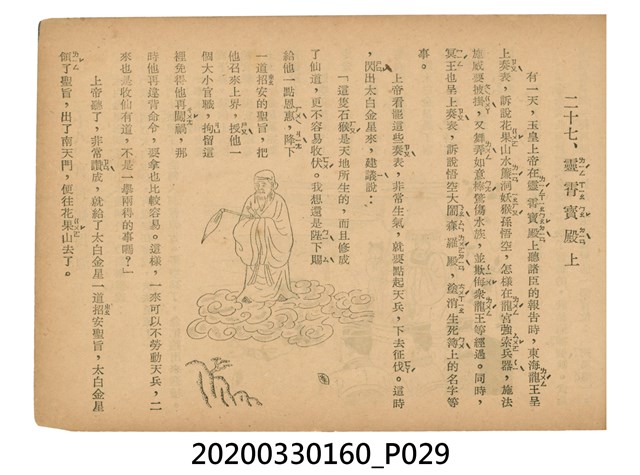 二十七、靈霄寶殿上
有一天，玉皇上帝在靈霄寶殿上聽諸臣的報告時，東海龍王呈
上奏表，訴說花果山水簾洞妖猴孫悟空，怎樣在龍宮強索兵器，施法
施威要披掛，又舞弄如意棒驚傷水族，並欺侮衆龍王等經過。同時，
冥王也呈上奏表，訴說悟空大鬧森羅殿，塗消生死簿上的名字等
事。
上帝看罷這些奏表，非常生氣，就要點起天兵，下去征伐。這時
，閃出太白金星來，建議說：
「這隻石猴是天地所生的，而且修成
了仙道，更不容易收伏。我想還是陛下賜
給他一點恩惠，降下
一道招安的聖旨，把
他召來上界，授他一
個大小官職，拘留這
裡免得他再鬧禍，那
時他再違背命令，要拿也比較容易。這樣，一來可以不勞動天兵，二
來也是收仙有道，不是一擧兩得的事嗎？」
上帝聽了，非常讚成，就給了太白金星一道招安聖旨，太白金星
領了聖旨，出了南天門，便往花果山去了。
20200330160_P029